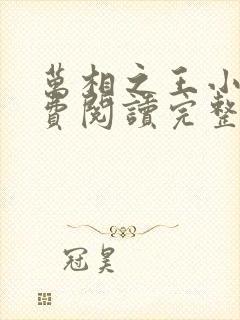 萬相之王小
費閱讀完整
冠昊